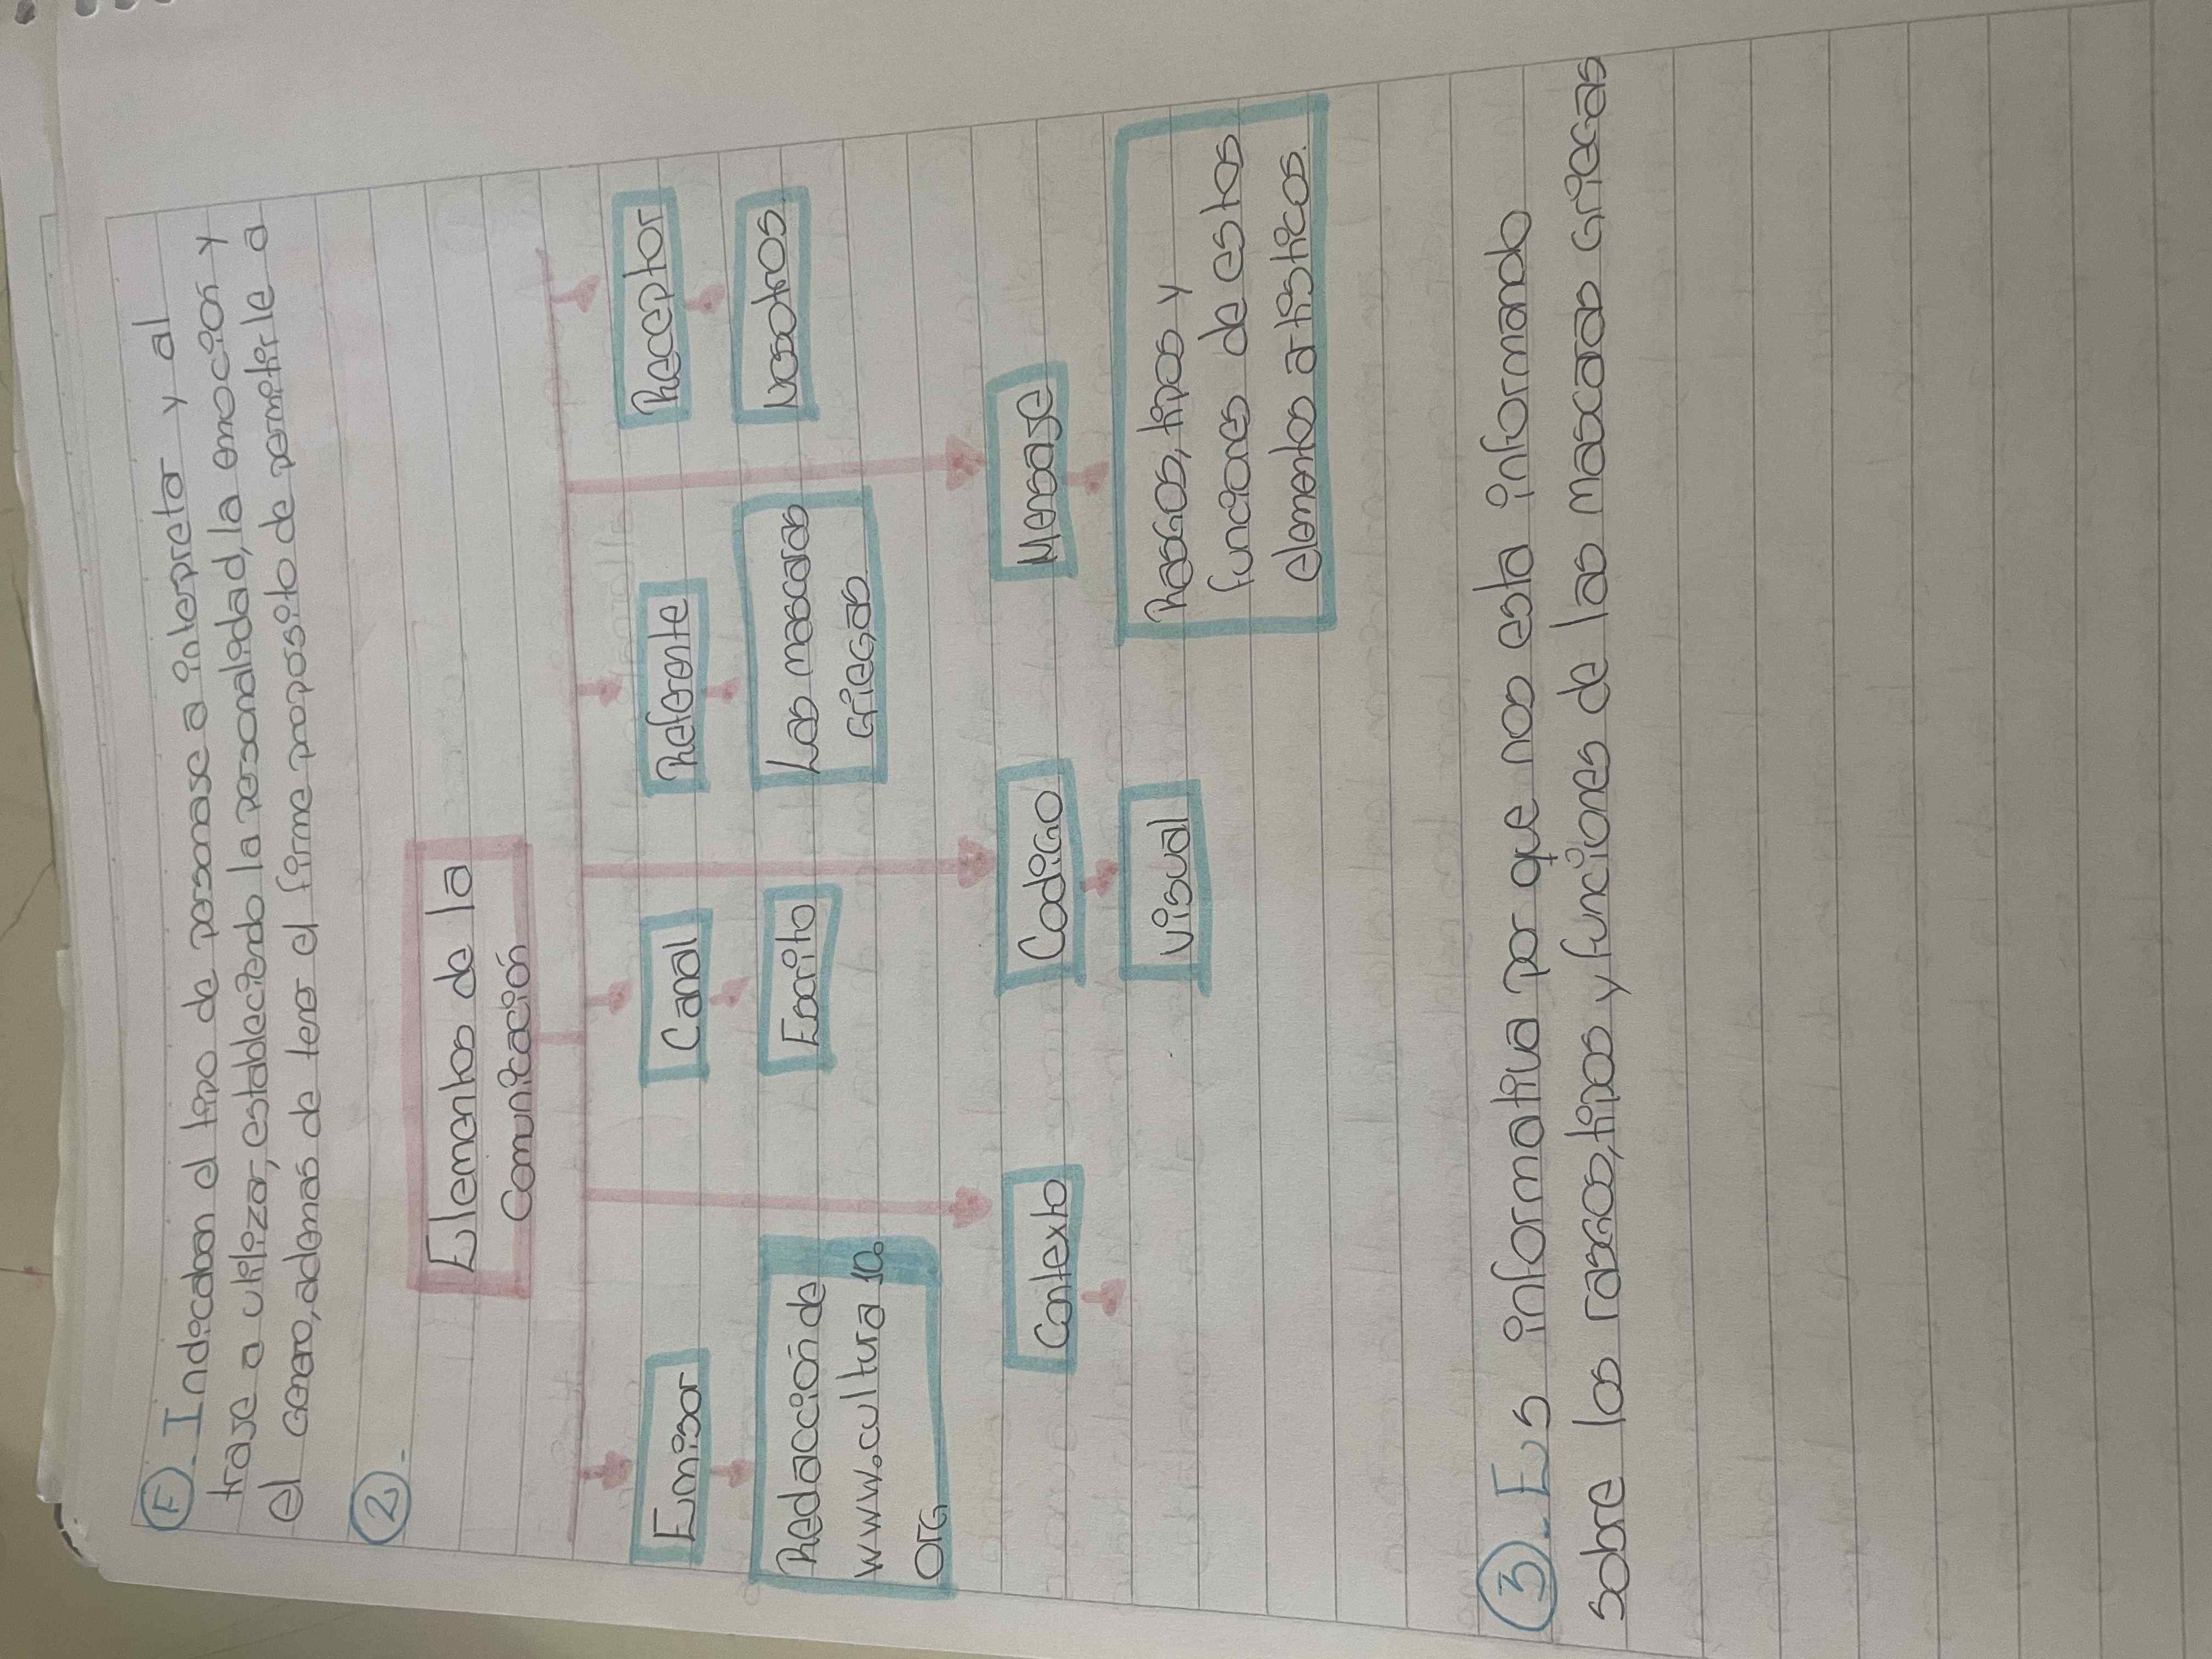 F. Indicaban el tipo de personaje a interpretar y al
traje a utilizar, estableciendo la personalidad, la emoción y
el genero, ademas de tener el firme proposito de permitirle a
2.
Elementos de la
comunicación
Emisor
Canal
Referente
Receptor
Redacción de
www.cultura10.
org
Escrito
Las mascaras
griegas
Nosotros
Contexto
Codigo
Mensaje
Visual
Rasgos, tipos y
funciones de estos
elementos artisticos.
3. Es informativa por que nos esta informando
sobre los rasgos, tipos y funciones de las mascaras griegas